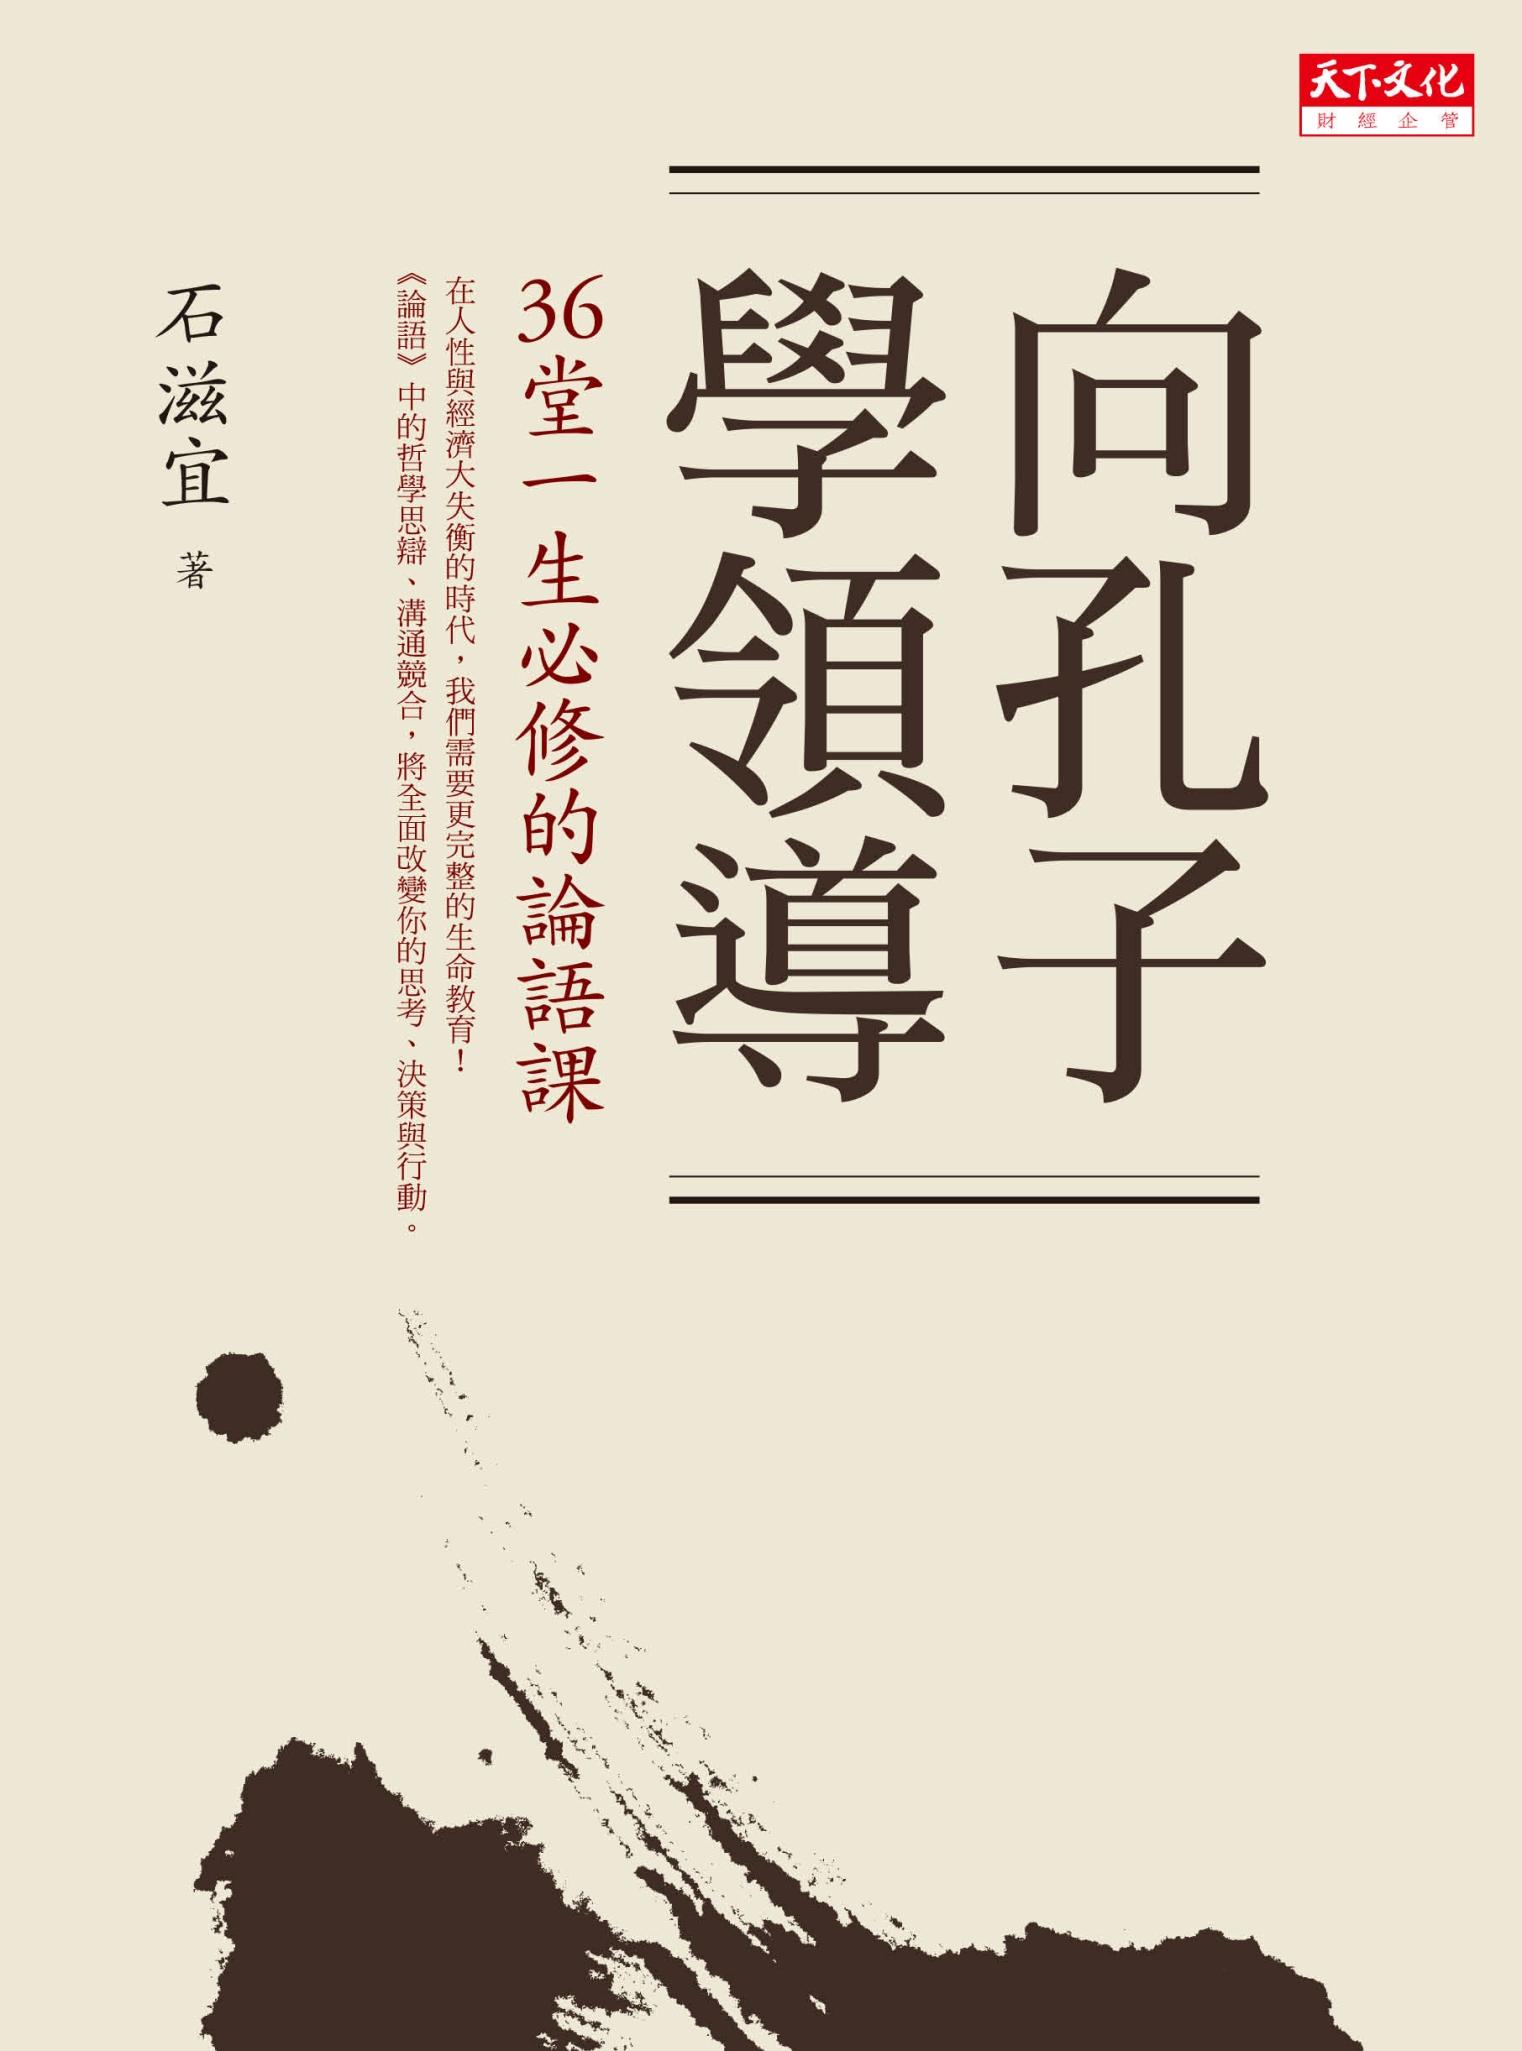 天下文化
財經企管
向孔子
學領導
36堂一生必修的論語課
在人性與經濟大失衡的時代，我們需要更完整的生命教育！
《論語》中的哲學思辯、溝通競合，將全面改變你的思考、決策與行動。
石滋宜 著